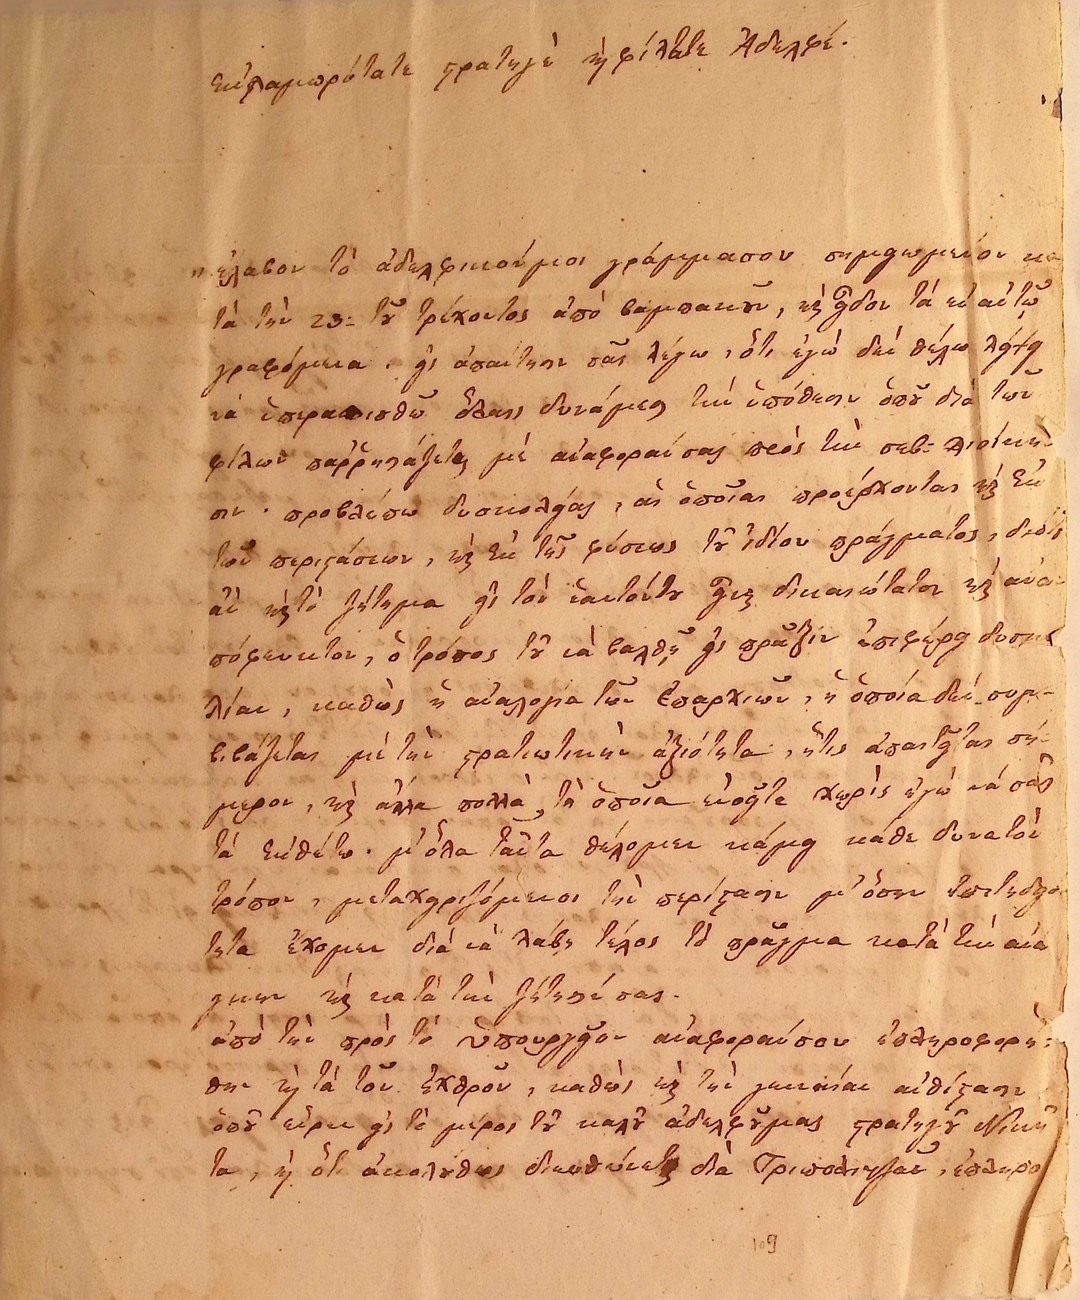 Ἐκλαμπρότατε στρατηγὲ καὶ φίλτατε Ἀδελφέ.
ἔλαβον τὸ ἀδελφικόνμοι γράμμασου σημειωμένον κα
τὰ τὴν 23: τοῦ τρέχοντος ἀπὸ βαμπακοῦ, καὶ εἶδον τὰ ἐν αὐτῷ
γραφόμενα. εἰς ἀπάντησιν σᾶς λέγω, ὅτι ἐγὼ δὲν θέλω λείψει
νὰ ὑπερασπισθῶ ὅλαις δυνάμεσι τὴν ὑπόθεσιν ὁποῦ διὰ τῶν
φίλων παῤῥησιάζεται μὲ ἀναφοράν σας πρὸς τὴν σεβ: διοίκη
σιν. προβλέπω δυσκολίας, αἱ ὁποῖαι προέρχονται καὶ ἐκ
τῶν περιστάσεων, καὶ ἐκ τῆς φύσεως τοῦ ἰδίου πράγματος, διότι
ἂν καὶ τὸ ζήτημα εἰς τὸν ἑαυτόντου εἶναι δικαιώτατον καὶ ἀνα
πόφευκτον, ὁ τρόπος τοῦ νὰ βαλθῇ εἰς πρᾶξιν ἐπιφέρει δυσκο
λίαν, καθὼς ἡ ἀναλογία τῶν ἐπαρχιῶν, ἡ ὁποία δὲν συμ-
βιβάζεται μὲ τὴν στρατιωτικὴν ἀξιότητα, ἥτις ἀπαιτεῖται σή-
μερον, καὶ ἄλλα πολλὰ, τὰ ὁποῖα ἐννοεῖτε χωρὶς ἐγὼ νὰ σᾶς
τὰ ἐκθέτω. μ' ὅλα ταῦτα θέλομεν κάμει κάθε δυνατὸν
τρόπον, μεταχειριζόμενοι τὴν περίστασιν μ' ὅσην ἐπιτηδειό
τητα ἔχομεν διὰ νὰ λάβῃ τέλος τὸ πρᾶγμα κατὰ τὴν ἀνά
γκην καὶ κατὰ τὴν ζήτησίν σας.
ἀπὸ τὴν πρὸς τὸ ὑπουργεῖον ἀναφοράνσου ἐπληροφορή-
θην καὶ τὰ τῶν ἐχθρῶν, καθὼς καὶ τὴν γενναίαν ἀντίστασιν
ὁποῦ εὗρεν εἰς τὸ μέρος τοῦ καλοῦ ἀδελφοῦμας στρατηγοῦ Νική
τα, καὶ ὅτι ἀκολούθως διευθύνεται διὰ Τριπολιτζὰν, ἐπληρο
109